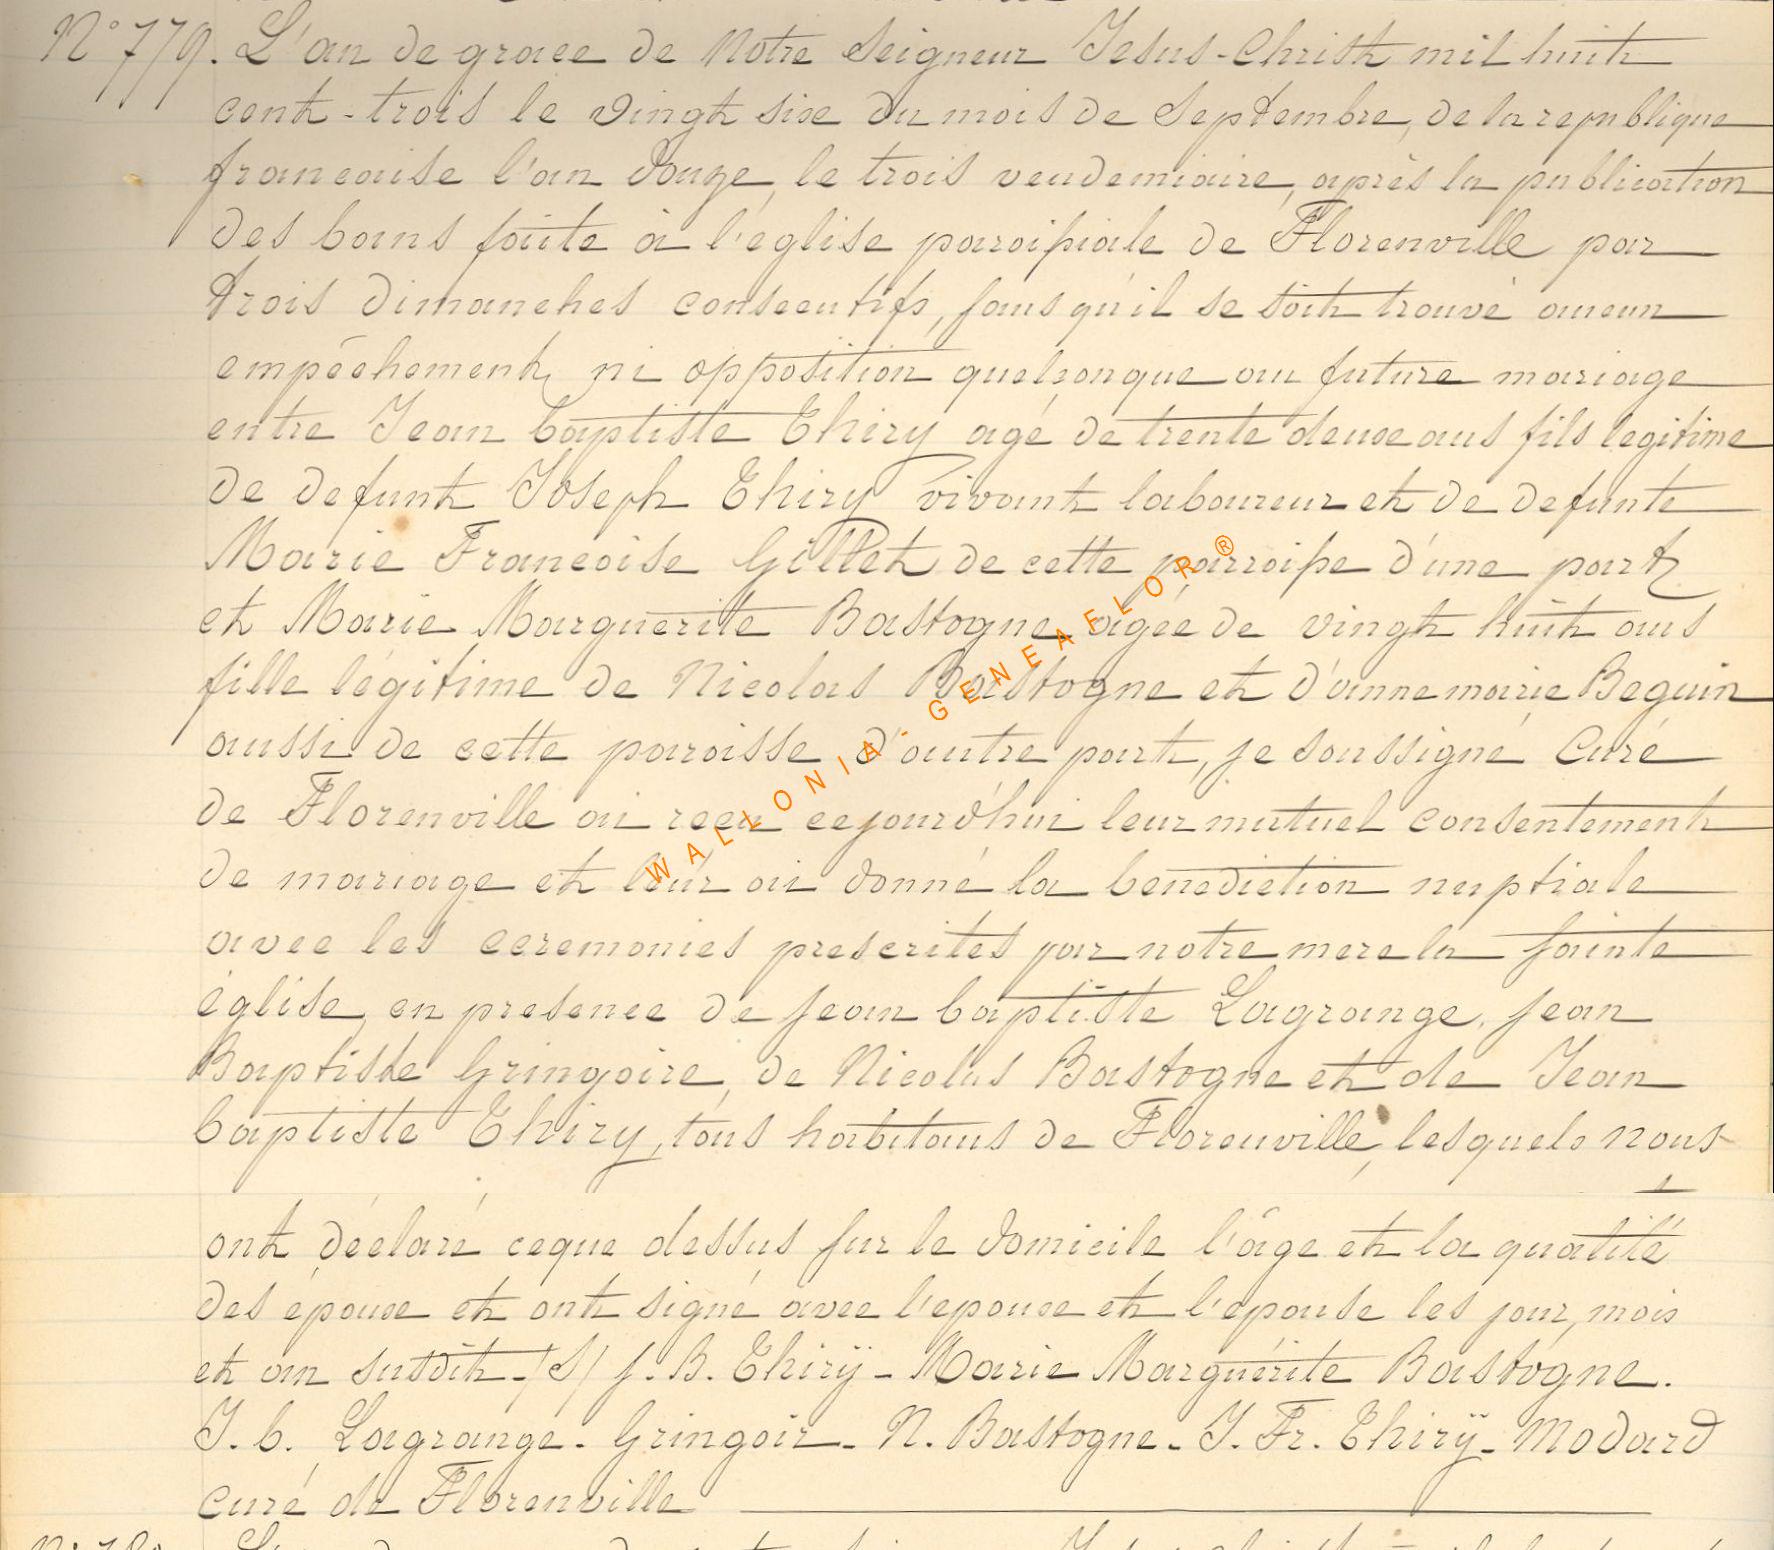 N° 779. L'an de grace de Notre Seigneur Jesus-Christ mil huit
cent-trois le vingt sixe du mois de Septembre, de la republique
francaise l'an douze, le trois vendemiaire, après la publication
des bans faite à l'eglise paroissiale de Florenville par
trois dimanches consecutifs, sans qu'il se soit trouvé aucun
empêchement, ni opposition quelconque au future mariage
entre Jean baptiste Thiry agé de trente deuxe ans fils legitime
de defunt Joseph Thiry vivant laboureur et de defunte
Marie Francoise Gillet de cette parroisse d'une part
et Marie Marguerite Bastogne agée de vingt huit ans
fille légitime de Nicolas Bastogne et d'anne marie Beguin
aussi de cette paroisse d'autre part, je soussigné Curé
de Florenville ai recu cejourd'hui leur mutuel consentement
de mariage et leur ai donné la benediction nuptiale
avec les ceremonies prescrites par notre mere la sainte
église, en presence de jean baptiste Lagrange, jean
Baptiste Gringoire, de Nicolas Bastogne et de Jean
baptiste Thiry, tous habitans de Florenville, lesquels nous
ont déclaré ceque dessus sur le domicile l'âge et la qualité
des épouxe et ont signé avec l'epouxe et l'epouse les jour, mois
et an susdit. /S/ j. B. Thirÿ - Marie Marguérite Bastogne.
J. b. Lagrange - Gringoir - N. Bastogne - J. Fr. Thirÿ - Modard
curé de Florenville
WALLONIA - GENEAFLOR ®